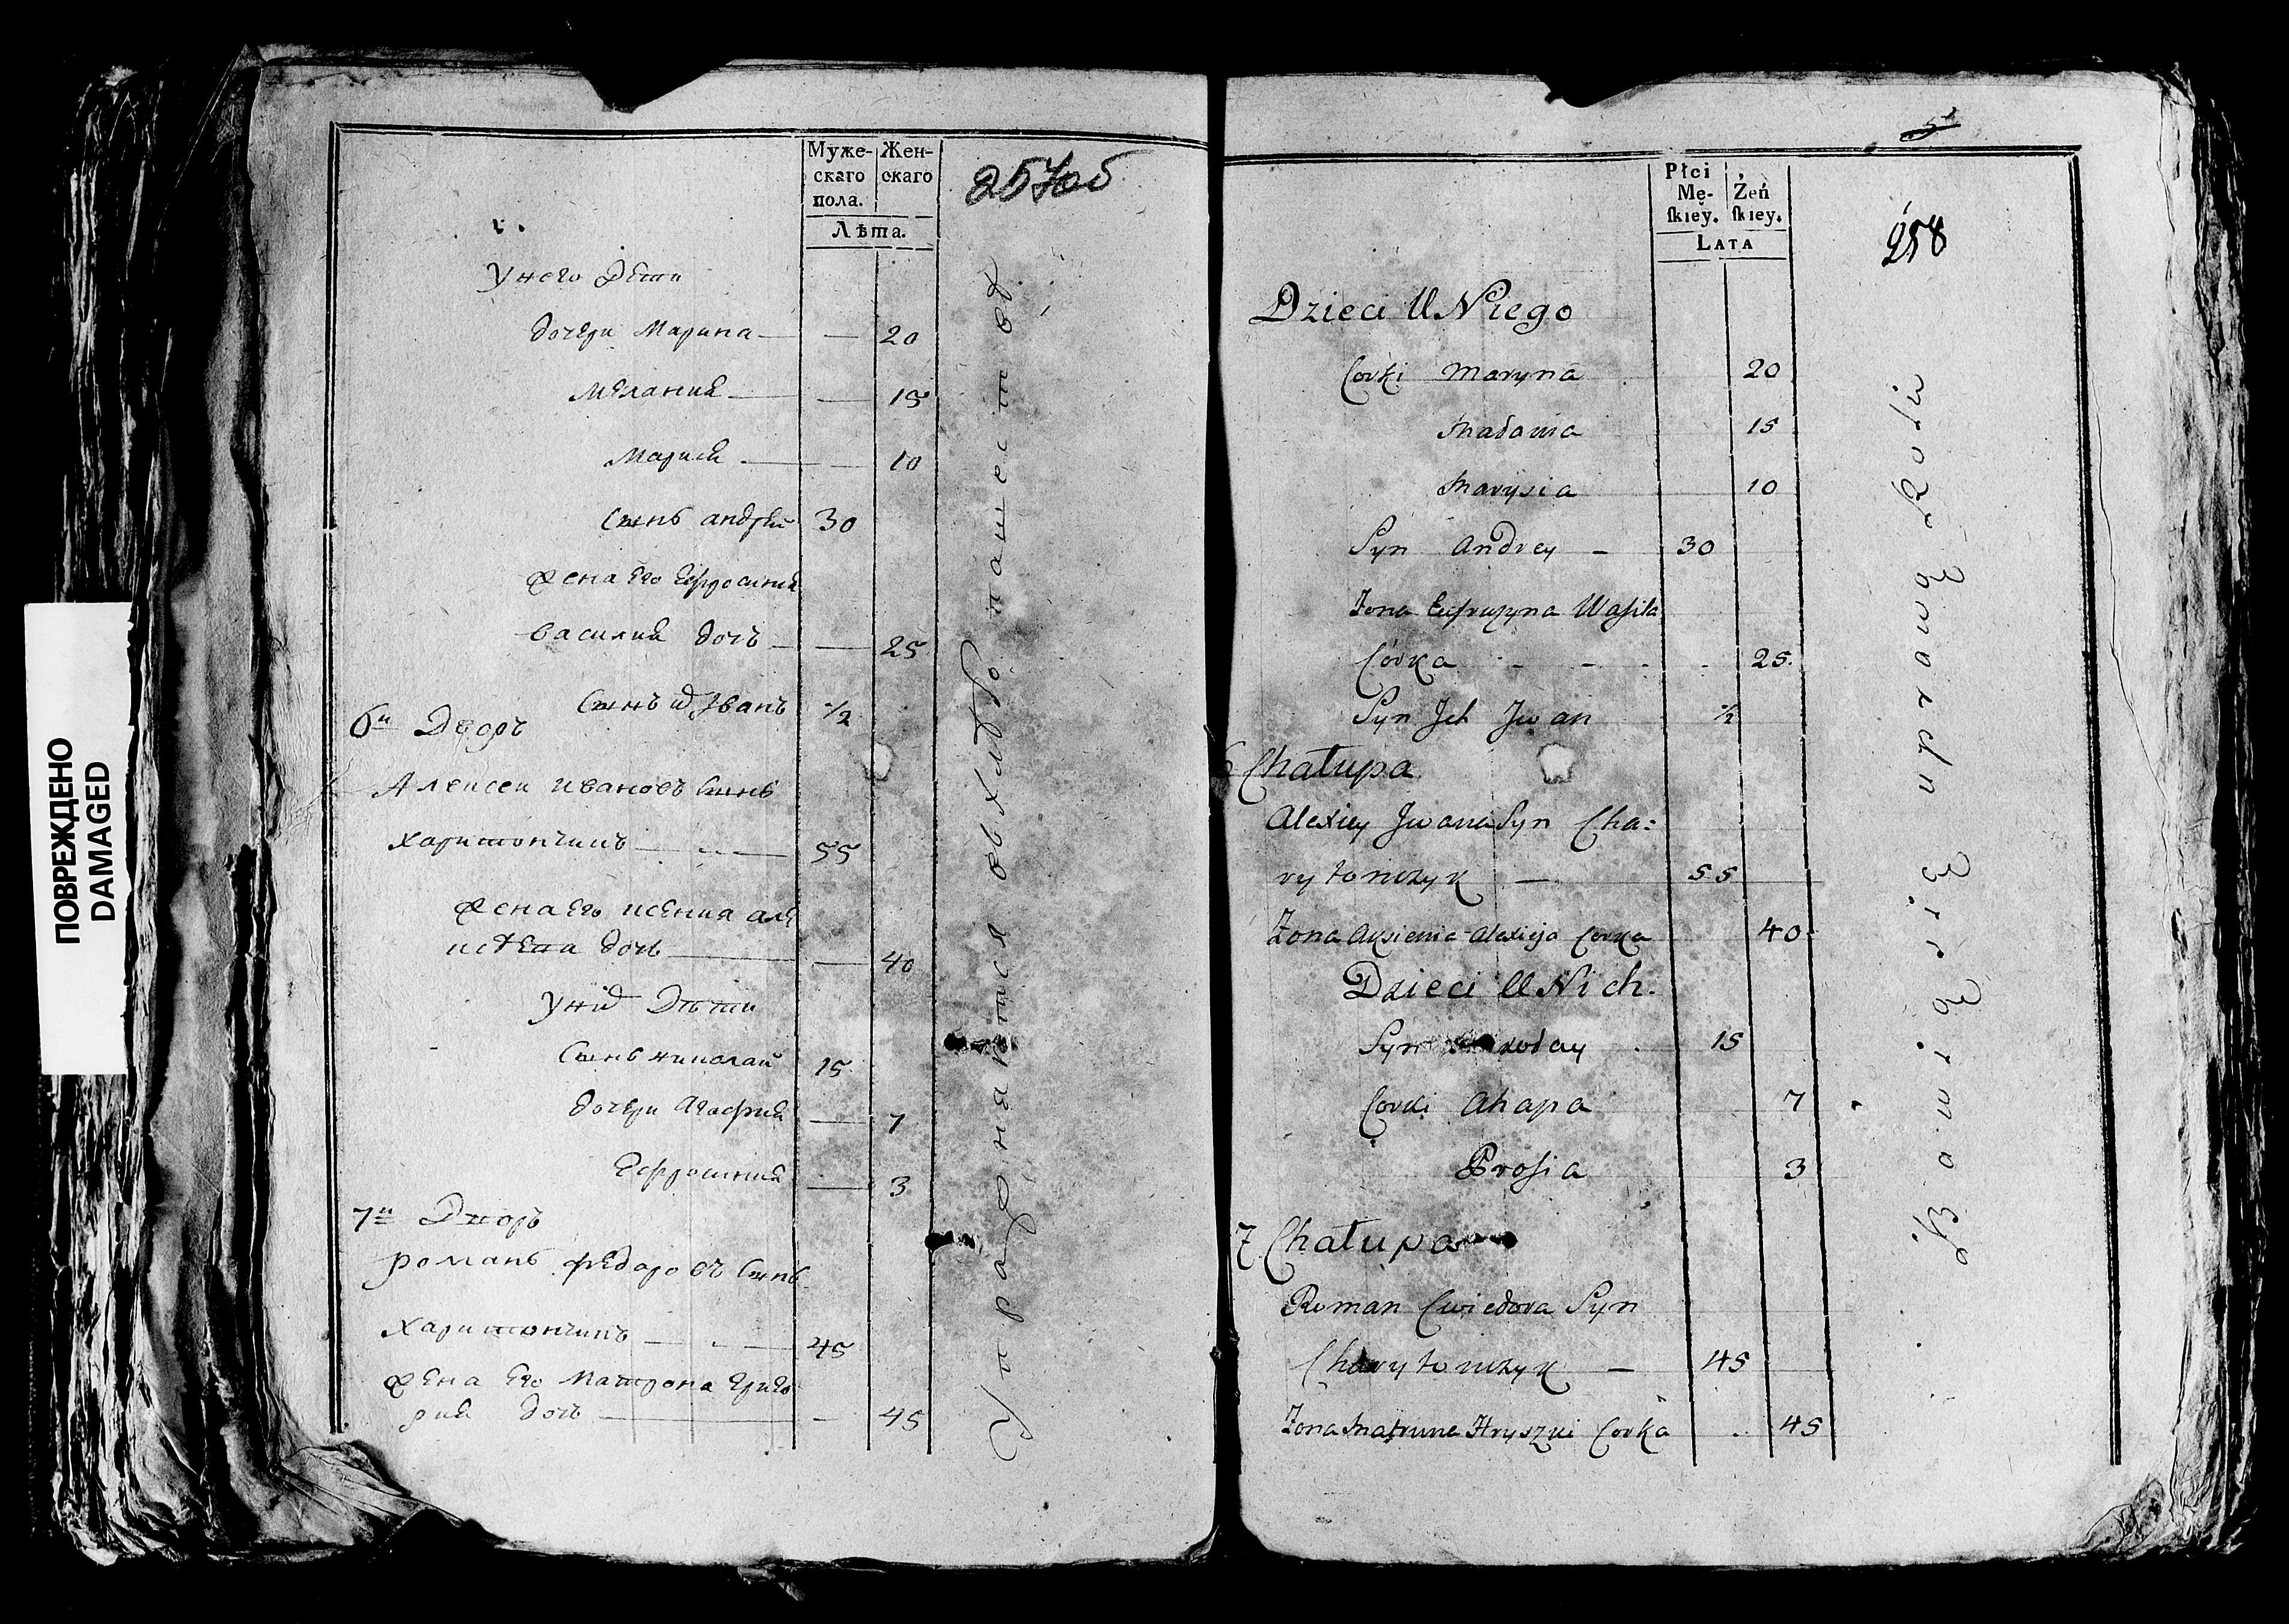 ПОВРЕЖДЕНО
DAMAGED
Муже-
скаго
пола.
Жен-
скаго
Лѣта.
257об
Унего Дети
дочери Марина — — 20
Мелания — — 15
Марися — — 10
Сынъ андрей 30
жена Его Ефросиния
василия дочъ — — 25
Сынъ их Иванъ 1/2
6й Дворъ
Алексеи ивановъ Сынъ
харитончикъ — 55
жена Его ксения але
ксѣева дочь — — 40
Уних Дѣти
Сынъ николай 15
дочери Агафия — 7
Ефросиния — 3
7й Дворъ
романъ федоровъ Сынъ
харитончикъ — 45
жена Его Матрона Григо
рия дочь — — 45
Упражняются въ хлебопашествѣ
5
Płci
Mę-
skiey.
Żeń
skiey.
LATA
258
Dzieci U Niego
Corki Maryna 20
Małania 15
Marysia 10
Syn Andrey — 30
Zona Eufruzyna Wasila
Córka 25
Syn Ich Jwan 1/2
6 Chałupa
Alexiey Jwana Syn Cha=
rytonczyk — 55
Zona Aksienia Alexieja Corka 40
Dzieci U Nich.
Syn 15
Corki Ahapa 7
Prosia 3
7 Chałupa
Roman Cwiedora Syn
Charytonczyk — 45
Zona Matruna Hryszki Corka 45
Bawią się uprawą Roli